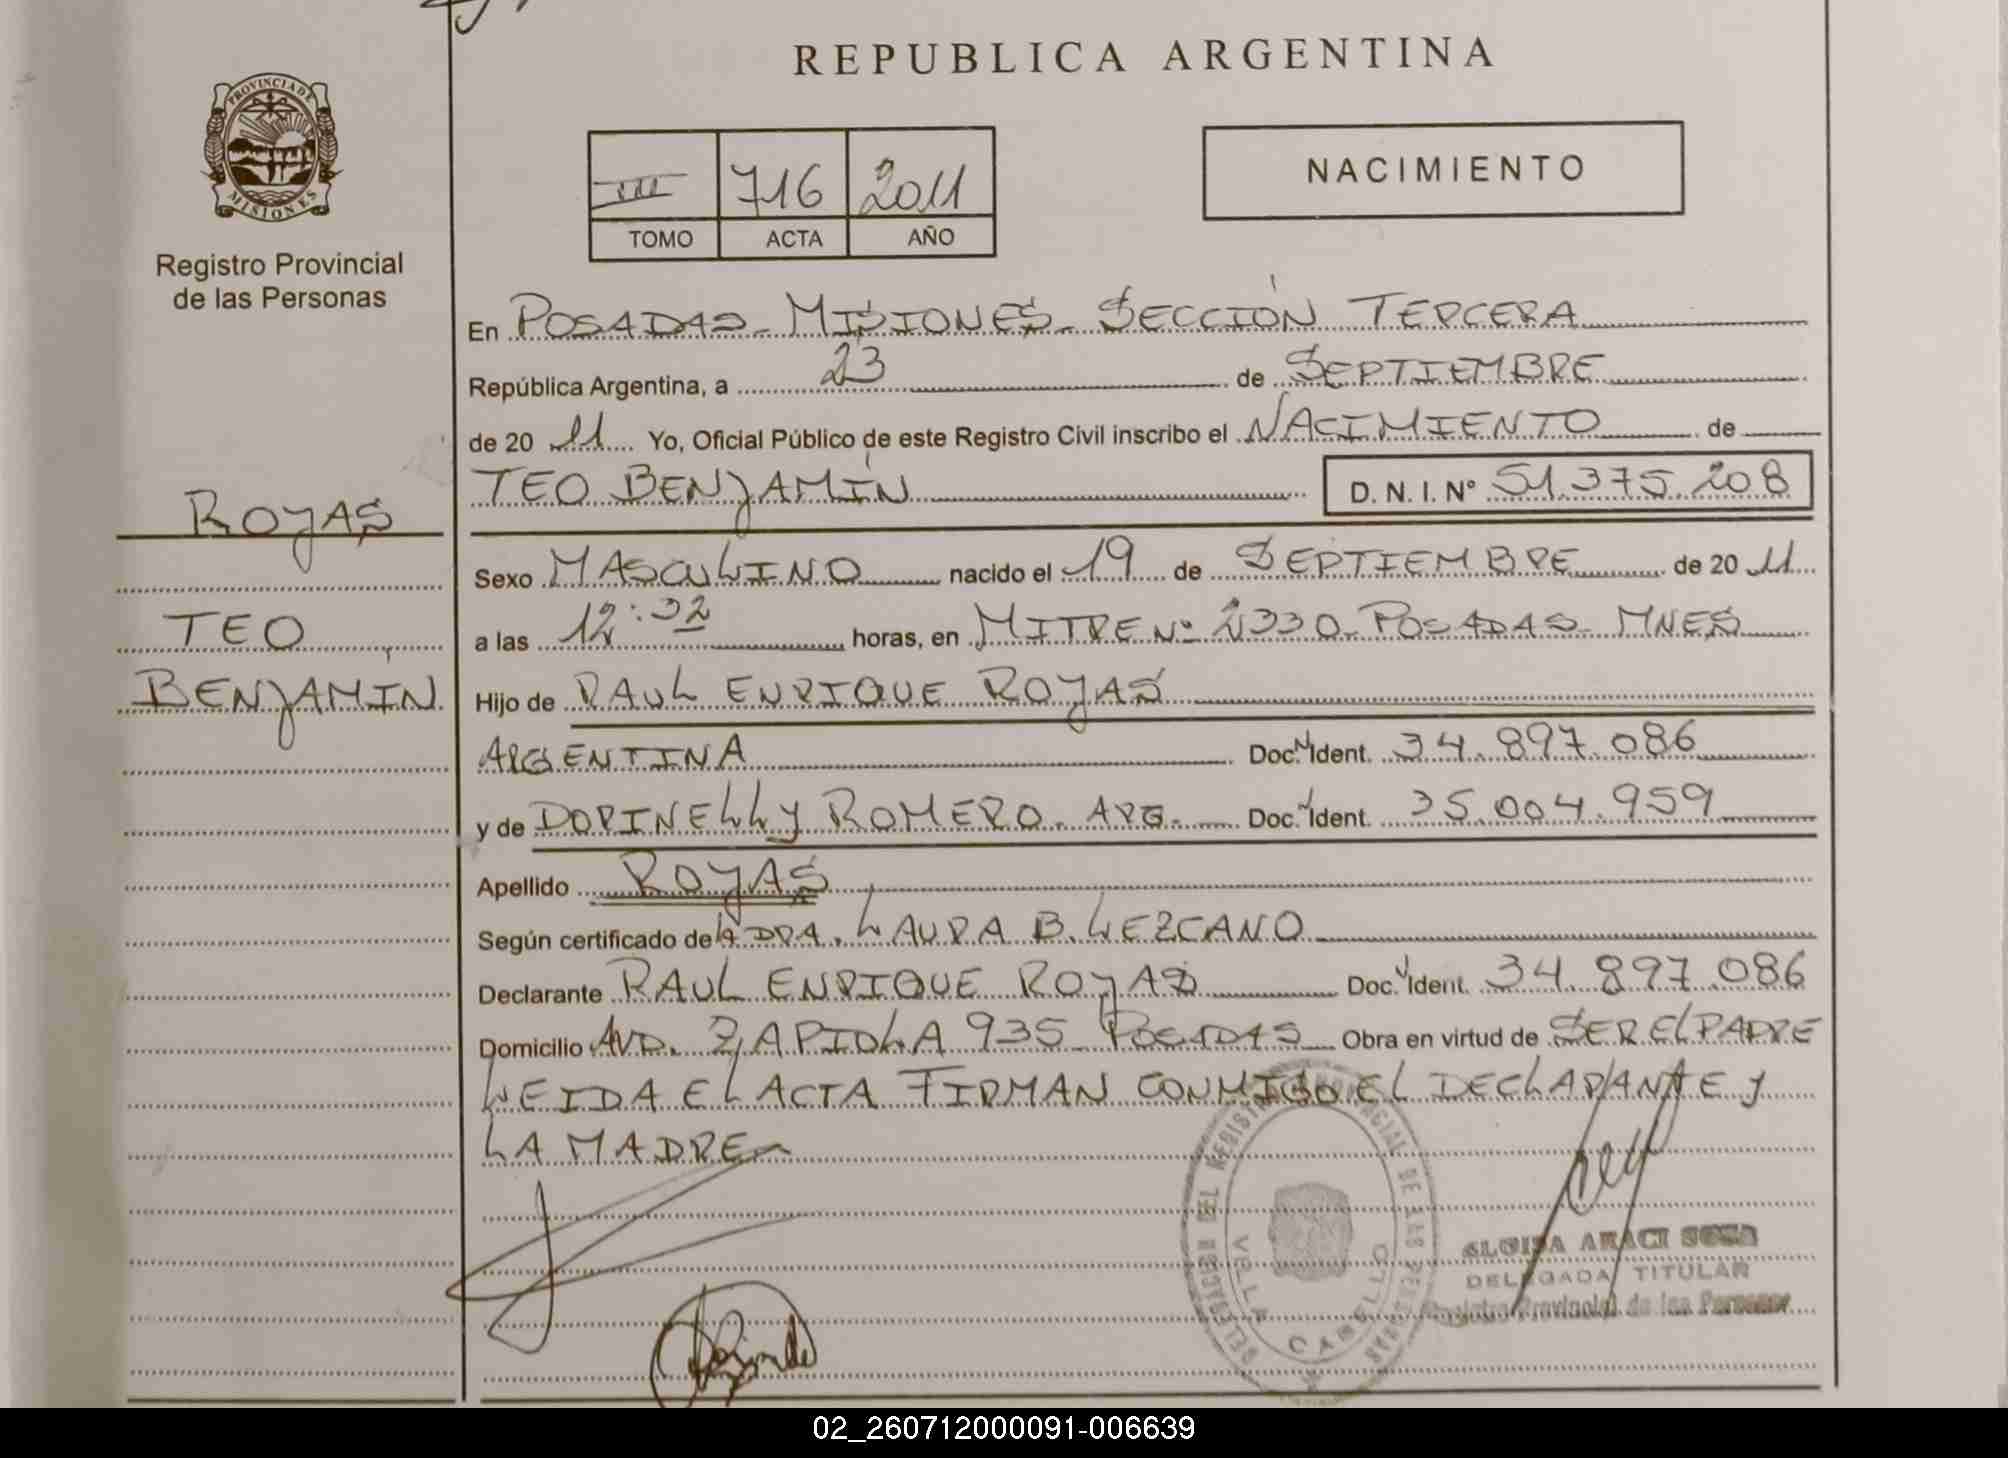 REPUBLICA ARGENTINA
PROVINCIA DE
MISIONES
Registro Provincial
de las Personas
III 716 2011
TOMO ACTA AÑO
NACIMIENTO
En POSADAS - MISIONES - SECCIÓN TERCERA
República Argentina, a 23 de SEPTIEMBRE
de 20 11 Yo, Oficial Público de este Registro Civil inscribo el NACIMIENTO de
TEO BENJAMÍN D. N. I. Nº 51.375.208
ROJAS
TEO
BENJAMÍN
Sexo MASCULINO nacido el 19 de SEPTIEMBRE de 20 11
a las 12:32 horas, en MITRE Nº 2330 - POSADAS - MNES
Hijo de RAUL ENRIQUE ROJAS
ARGENTINA Doc. Ident. 34.897.086
y de DORINELLY ROMERO - ARG. - Doc. Ident. 35.004.959
Apellido ROJAS
Según certificado de la DRA. LAURA B. LEZCANO
Declarante RAUL ENRIQUE ROJAS Doc. Ident. 34.897.086
Domicilio AVD. ZAPIOLA 935 - POSADAS Obra en virtud de SER EL PADRE
LEIDA EL ACTA FIRMAN CONMIGO EL DECLARANTE Y
LA MADRE
DELEGACION DEL REGISTRO PROVINCIAL DE LAS PERSONAS
VILLA CABELLO
ELOISA ARACI SOSA
DELEGADA TITULAR
Registro Provincial de las Personas
02_260712000091-006639